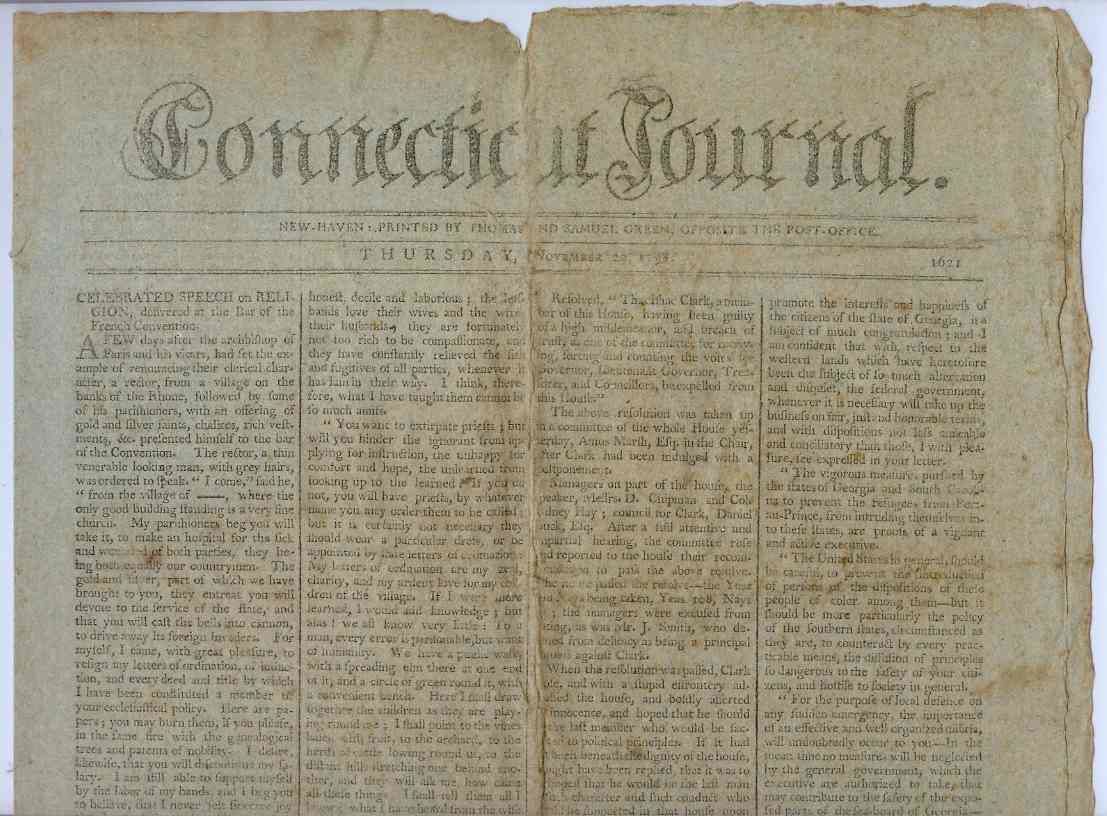 Connecticut Journal.
NEW-HAVEN: PRINTED BY THOMAS AND SAMUEL GREEN, OPPOSITE THE POST-OFFICE.
THURSDAY, November 1798.
1621
CELEBRATED SPEECH on RELI-
GION, delivered at the Bar of the
French Convention.
A FEW days after the archbishop of
Paris and his vicars, had set the ex-
ample of renouncing their clerical char-
acter, a rector, from a village on the
banks of the Rhone, followed by some
of his parishioners, with an offering of
gold and silver saints, chalices, rich vest-
ments, &c. presented himself to the bar
of the Convention. The rector, a thin
venerable looking man, with grey hairs,
was ordered to speak. " I come," said he,
" from the village of ——, where the
only good building standing is a very fine
church. My parishioners beg you will
take it, to make an hospital for the sick
and wounded of both parties, they be-
ing both equally our countrymen. The
gold and silver, part of which we have
brought to you, they entreat you will
devote to the service of the state, and
that you will cast the bells into cannon,
to drive away its foreign invaders. For
myself, I came, with great pleasure, to
resign my letters of ordination, of induc-
tion, and every deed and title by which
I have been constituted a member of
your ecclesiastical policy. Here are pa-
pers; you may burn them, if you please,
in the same fire with the genealogical
trees and patents of nobility. I desire,
likewise, that you will discontinue my sa-
lary. I am still able to support myself
by the labor of my hands, and I beg you
to believe, that I never felt sincerer joy
honest, docile and laborious; the hus-
bands love their wives and the wives
their husbands, they are fortunately
not too rich to be compassionate, and
they have constantly relieved the sick
and fugitives of all parties, whenever it
has lain in their way. I think, there-
fore, what I have taught them cannot be
so much amiss.
" You want to extirpate priests; but
will you hinder the ignorant from ap-
plying for instruction, the unhappy for
comfort and hope, the unlearned from
looking up to the learned? If you do
not, you will have priests, by whatever
name you may order them to be called;
but it is certainly not necessary they
should wear a particular dress, or be
appointed by state letters of ordination.
My letters of ordination are my zeal,
charity, and my ardent love for my chil-
dren of the village. If I were more
learned, I would add knowledge; but
alas! we all know very little: To a
man, every error is pardonable, but want
of humanity. We have a public walk,
with a spreading elm there at one end
of it, and a circle of green round it, with
a convenient bench. Here I shall draw
together the children as they are play-
ing round me; I shall point to the vines
laden with fruit, to the orchard, to the
herds of cattle lowing round us, to the
distant hills stretching one behind ano-
ther, and they will ask me, how came
all these things? I shall tell them all I
know; what I have heard from the wise
Resolved, " That Isaac Clark, a mem-
ber of this House, having been guilty
of a high misdemeanor, and breach of
trust, as one of the committee for receiv-
ing, sorting and counting the votes for
Governor, Lieutenant Governor, Trea-
surer, and Councillors, be expelled from
this House."
The above resolution was taken up
in a committee of the whole House yes-
terday, Amos Marsh, Esq. in the Chair,
after Clark had been indulged with a
postponement.
Managers on part of the house, the
speaker, Messrs. D. Chipman and
council for Clark, Daniel
Buck, Esq. After a full attentive and
impartial hearing, the committee rose
and reported to the house their recom-
mendation to pass the above resolve.
the resolve—the Yeas
and Nays being taken, Yeas 108, Nays
; the managers were excused from
voting, as was Mr. J. Smith, who de-
sired from delicacy as being a principal
against Clark.
When the resolution was passed, Clark
rose, and with a stupid effrontery ad-
dressed the house, and boldly asserted
innocence, and hoped that he should
be the last member who would be sac-
rificed to political principles. If it had
not been beneath the dignity of the house,
it might have been replied, that it was to
be hoped that he would be the last man
of such character and such conduct who
would be supported in that house upon
promote the interests and happiness of
the citizens of the state of Georgia, is a
subject of much congratulation; and I
am confident that with respect to the
western lands which have heretofore
been the subject of so much altercation
and disgust, the federal government,
whenever it is necessary will take up the
business on fair, just and honorable terms,
and with dispositions not less amicable
and conciliatory than those, I with plea-
sure, see expressed in your letter.
" The vigorous measures pursued by
the states of Georgia and South Caroli-
na to prevent the refugees from Port-
au-Prince, from intruding themselves in-
to these states, are proofs of a vigilant
and active executive.
" The United States in general, should
be careful, to prevent the introduction
of persons of the dispositions of these
people of color among them—but it
should be more particularly the policy
of the southern states, circumstanced as
they are, to counteract by every prac-
ticable means, the diffusion of principles
so dangerous to the safety of your citi-
zens, and hostile to society in general.
" For the purpose of local defence on
any sudden emergency, the importance
of an effective and well organized militia,
will undoubtedly occur to you—In the
mean time no measures will be neglected
by the general government, which the
executive are authorized to take, that
may contribute to the safety of the expo-
sed parts of the sea-board of Georgia—